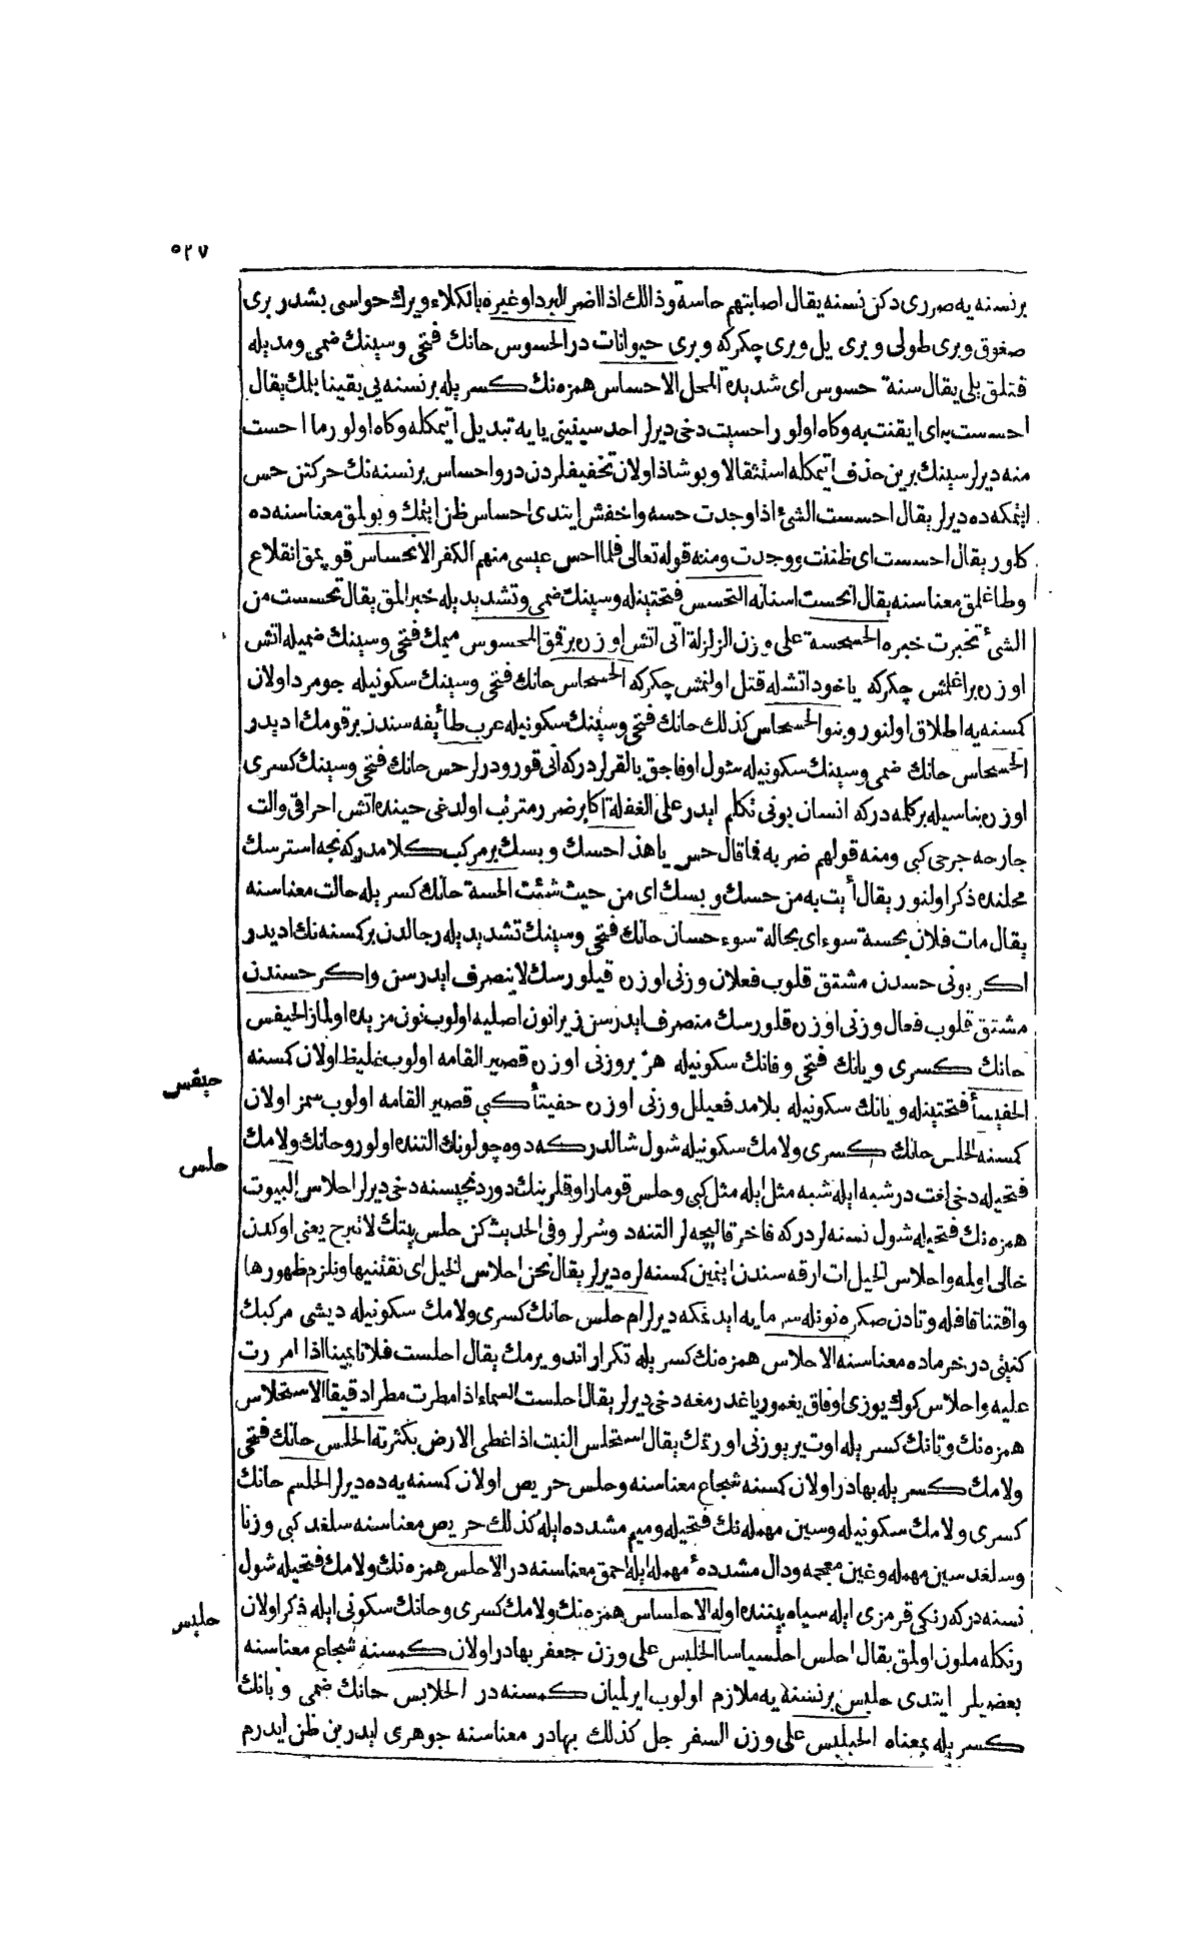 ٥٢٧
برنسنه يه ضرری دكن نسنه يقال اصابتهم حاسة وذالك اذا اضر البرد او غيره بالكلاء ويرك حواسی بشدر بری
صغوق وبری طولی وبری يل وبری چكركه وبری حيوانات در الحسوس حانك فتحی وسينك ضمی ومديله
قتلق يلی يقال سنة حسوس ای شديدة المحل الاحساس همزه نك كسريله برنسنه يی يقينا بلمك يقال
احسست به ای ايقنت به وكاه اولور احسيت دخی ديرلر احد سينينی يايه تبديل اتمكله وكاه اولور ما احست
منه ديرلر سينك برين حذف اتمكله استثقالا وبو شاذ اولان تخفيفلردن در واحساس برنسنه نك حركتن حس
ايتمكه ده ديرلر يقال احسست الشئ اذا وجدت حسه واخفش ايتدی احساس ظن ايتمك وبولمق معناسنه ده
كلور يقال احسست ای ظننت ووجدت ومنه قوله تعالى فلما احس عيسى منهم الكفر الانحساس قوپمق انقلاع
وطاغلمق معناسنه يقال انحست اسنانه التحسس فتحتينله وسينك ضمی وتشديديله خبر المق يقال تحسست من
الشئ تخبرت خبره الحسحسة على وزن الزلزلة اتی اتش اوزره برقمق المحسوس ميمك فتحی وسينك ضميله اتش
اوزره براغلمش چكركه ياخود اتشله قتل اولنمش چكركه الحسحاس حانك فتحی وسينك سكونيله جومرد اولان
كسنه يه اطلاق اولنور وبنوا الحسحاس كذلك حانك فتحی وسينك سكونيله عرب طائيفه سندن برقومك اديدر
الحسحاس حانك ضمی وسينك سكونيله شول اوفاجق بالقلردركه انی قورودرلر حس حانك فتحی وسينك كسری
اوزره بناسيله بر كلمه دركه انسان بونی تكلم ايدر على الغفلة اكا بر ضرر مترتب اولدغی حينده اتش احراقی والت
جارحه جرحی كبی ومنه قولهم ضربه فما قال حس ياهذا حسك وبسك بر مركب كلامدركه نجه استرسك
محلنده ذكر اولنور يقال أيت به من حسك وبسك ای من حيث شئت الحسة حانك كسريله حالت معناسنه
يقال مات فلان بحسة سوء ای بحالة سوء حسان حانك فتحی وسينك تشديديله رجالدن بر كسنه نك اديدر
اكر بونی حسدن مشتق قلوب فعلان وزنی اوزره قيلورسك لاينصرف ايدرسن واكر حسندن
مشتق قلوب فعال وزنی اوزره قلورسك منصرف ايدرسن زيرا نون اصليه اولوب نون مزيده اولماز الحيفس
حانك كسری ويانك فتحی وفانك سكونيله هزبر وزنی اوزره قصير القامه اولوب غليظ اولان كمسنه
حيفس
الحفيسأ فتحتينله ويانك سكونيله بلامد فعيلل وزنی اوزره حفيتأ كبی قصير القامه اولوب سمز اولان
كمسنه الحلس حانك كسری ولامك سكونيله شول شالدركه دوه چولونك التنده اولور وحانك ولامك
حلس
فتحيله دخی لغت در شبه ايله شبه مثل ايله مثل كبی وحلس قومار اوقلرينك دوردنجيسنه دخی ديرلر احلاس البيوت
همزه نك فتحيله شول نسنه لردركه فاخر قاليچه لر التنه دوشرلر وفی الحديث كن حلس بيتك لاتبرح يعنی اوكدن
خالی اولمه واحلاس الخيل ات ارقه سندن اينمين كمسنه لره ديرلر يقال نحن احلاس الخيل ای نقتنيها ونلزم ظهورها
واقتنا قافله وتادن صكره نونله سرمايه ايدنمكه ديرلر ام حلس حانك كسری ولامك سكونيله ديشی مركبك
كنيتی در خر ماده معناسنه الاحلاس همزه نك كسريله تكرار اند ويرمك يقال احلست فلانا يمينا اذا امررت
عليه واحلاس كوك يوزی اوفاق يغمور ياغدرمغه دخی ديرلر يقال احلست السماء اذا مطرت مطرا دقيقا الاستحلاس
همزه نك وتانك كسريله اوت يريوزنی اورتمك يقال استحلس النبت اذا غطى الارض بكثرته الحلس حانك فتحی
ولامك كسريله بهادر اولان كمسنه شجاع معناسنه وحلس حريص اولان كمسنه يه ده ديرلر الحلسم حانك
كسری ولامك سكونيله وسين مهمله نك فتحيله وميم مشدده ايله كذلك حريص معناسنه سلغد كبی وزنا
وسلغد سين مهمله وغين معجمه ودال مشدده مهمله ايله احمق معناسنه در الاحلس همزه نك ولامك فتحيله شول
نسنه دركه رنكی قرمزی ايله سياه بيننده اوله الاحلساس همزه نك ولامك كسری وحانك سكونی ايله ذكر اولان
رنكله ملون اولمق يقال احلس احلسياسا الحلبس على وزن جعفر بهادر اولان كمسنه شجاع معناسنه
حلبس
بعضيلر ايتدی حلبس برنسنه يه ملازم اولوب ايرلميان كمسنه در الحلابس حانك ضمی وبانك
كسريله بمعناه الحبلبس على وزن السفرجل كذلك بهادر معناسنه جوهری ايدر بن ظن ايدرم